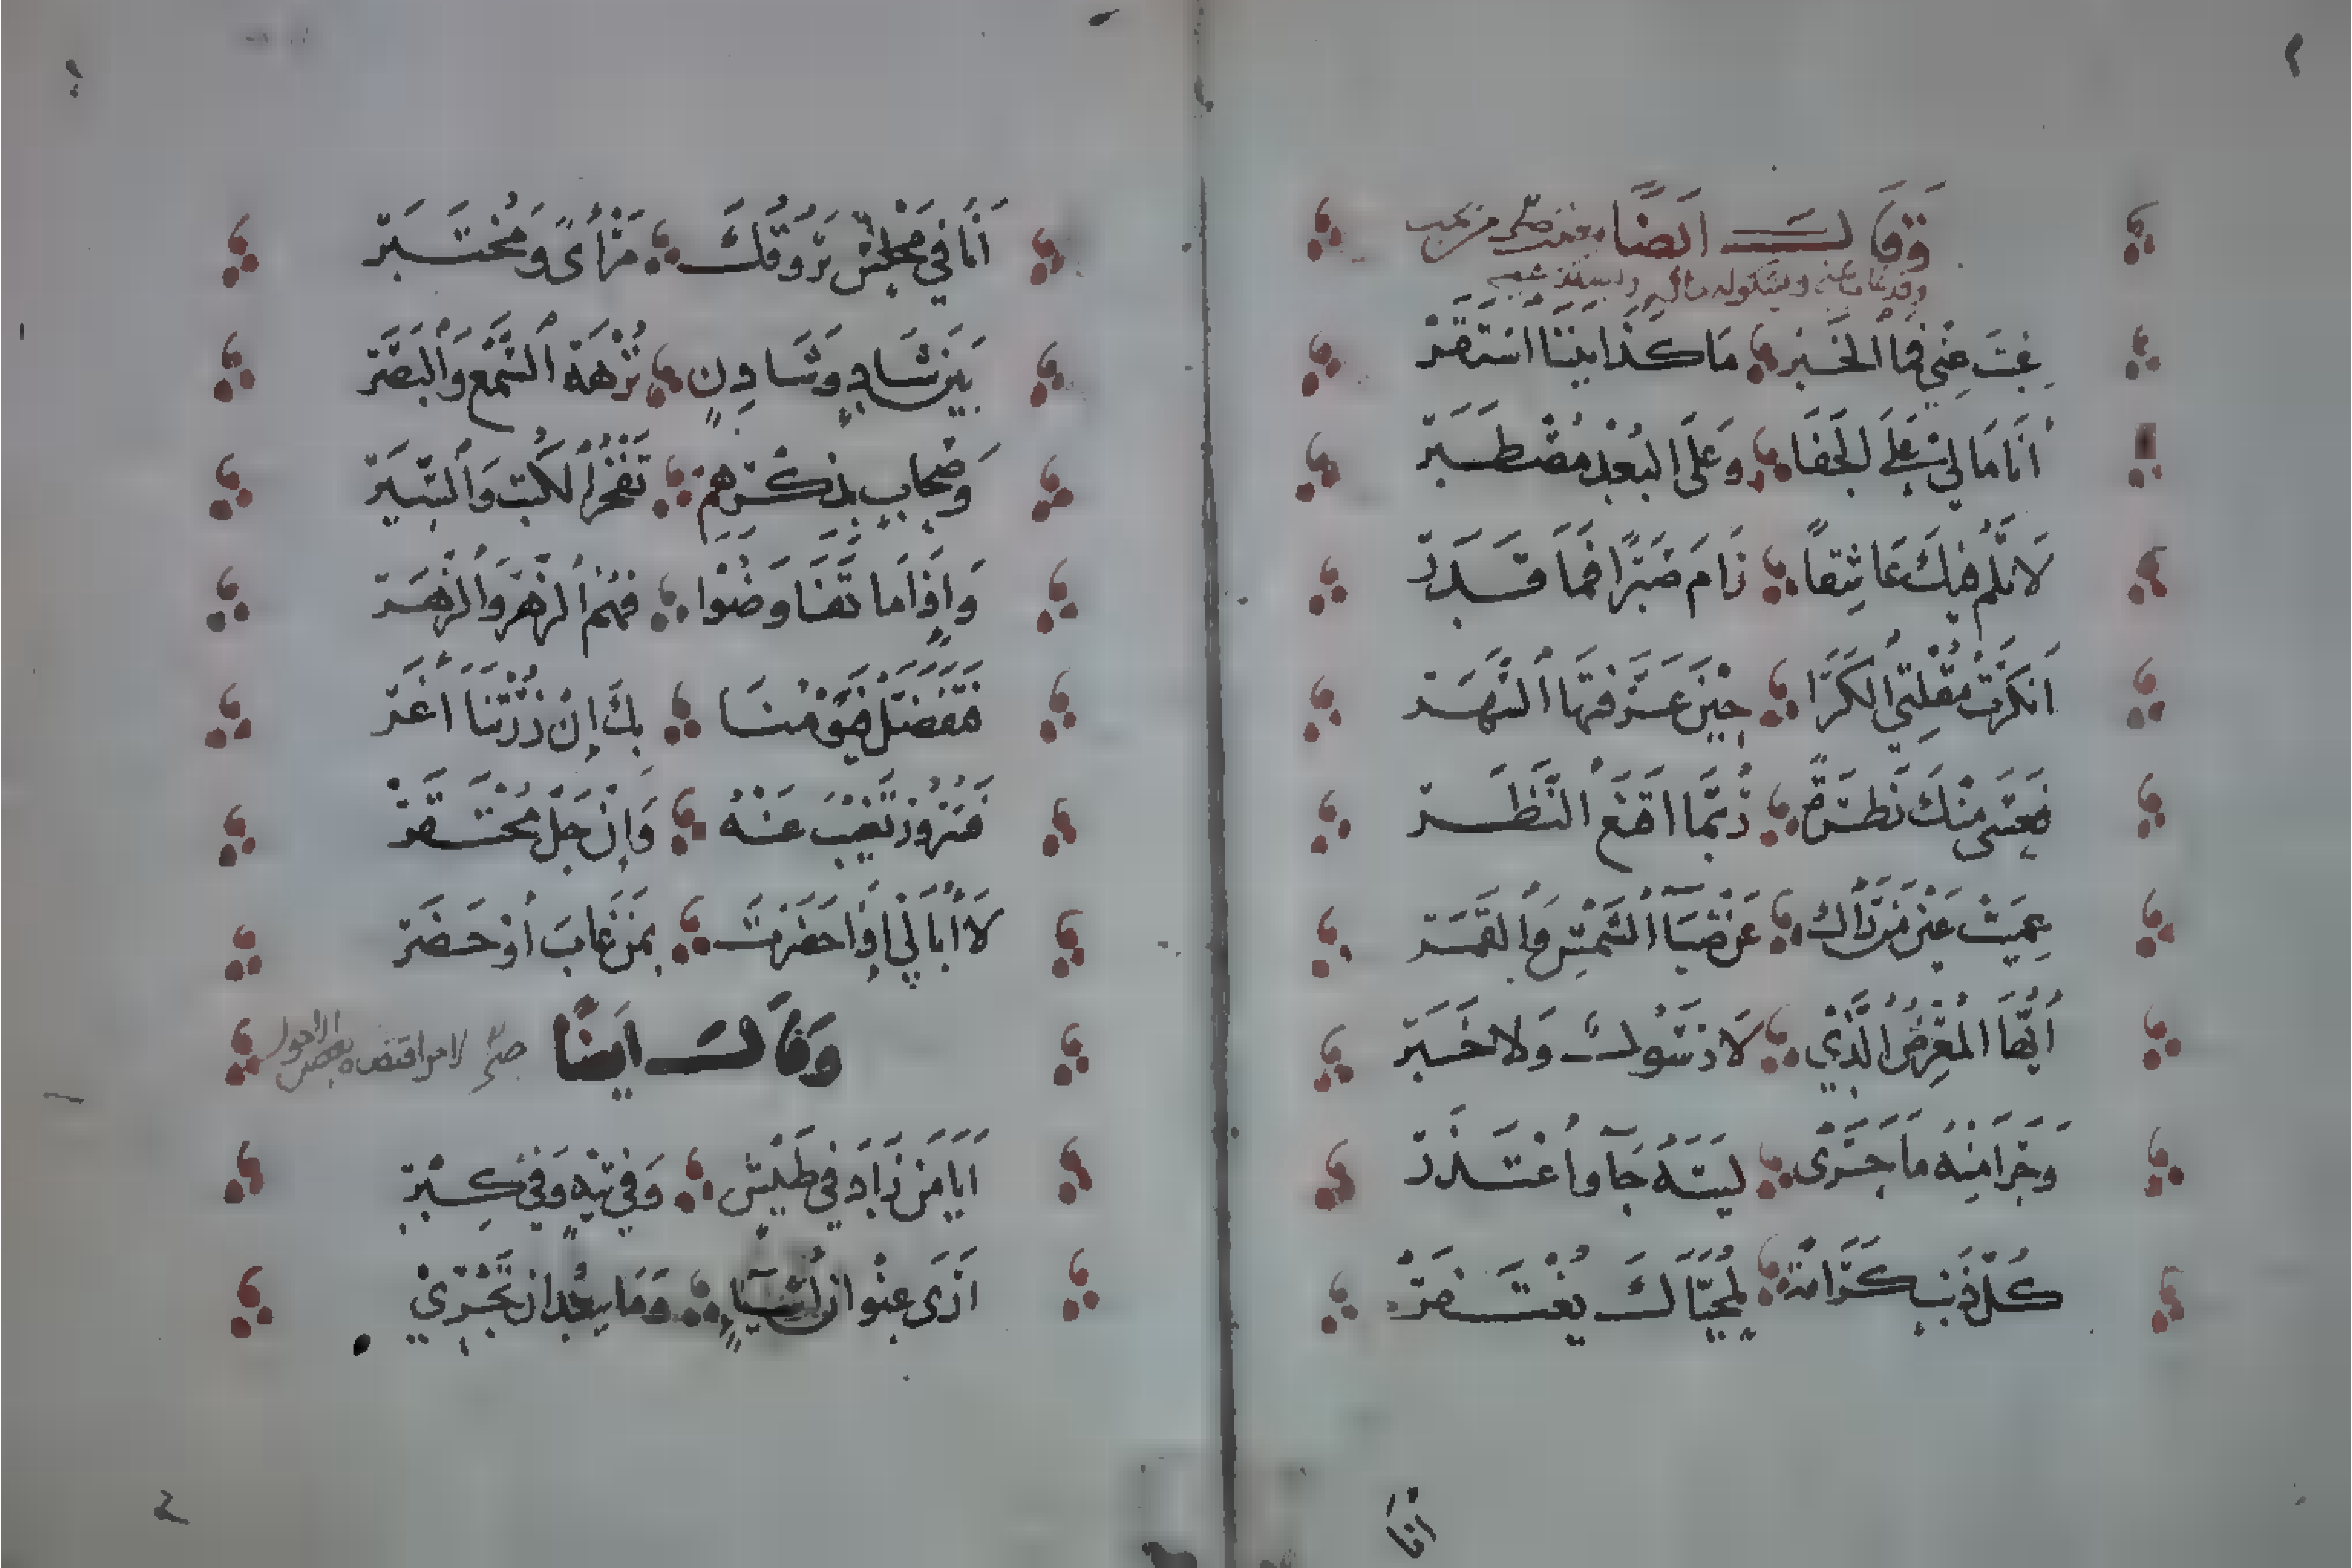 وَقَالَ ايضًا
غبْتَ عَنِّي فَمَا الْخَبَر مَا كَذَا بَيْنَنَا اسْتَقَرْ
أَنَا مَا لِي عَلَى الْجَفَا وَعَلَى الْبُعْدِ مُصْطَبَرْ
لَا تَلُمْ فِيكَ عَاشِقًا رَامَ صَبْرًا فَمَا قَدَرْ
أَنْكَرَتْ مُقْلَتِي الْكَرَا حِيْنَ عَرَّفْتَهَا السَّهَرْ
فَعَسَى مِنْكَ نَظْرَةٌ رُبَّمَا أَقْنَعَ النَّظَرْ
عَمِيَتْ عَيْنُ مَنْ رَآكَ عَنْ ضِيَآ الشَّمْسِ وَالْقَمَرْ
أَيُّهَا الْمُعْرِضُ الَّذِي لَا رَسُولٌ وَلَا خَبَرْ
وَجَرَا مِنْهُ مَا جَرَى لَيْتَهُ جَآ وَاعْتَذَرْ
كُلُّ ذَنْبٍ كَرَامَةً لِمُحَيَّاكَ يُغْتَفَرْ
أنَا
أَنَا فِي مَجْلِسٍ يَرُوقُكَ مَرْأًى وَمُخْتَبَرْ
بَيْنَ شَادٍ وَشَادِنٍ نُزْهَةُ السَّمْعِ وَالْبَصَرْ
وَصِحَابٍ بِذِكْرِهِمْ تَفْخَرُ الْكُتْبُ وَالسِّيَرْ
وَإِذَا مَا تَفَاوَضُوا فَهُمُ الزَّهْرُ وَالزَّهَرْ
فَتَفَضَّلْ فَيَوْمُنَا بِكَ إِنْ زُرْتَنَا أَغَرْ
فَسُرُورٌ تَغِيْبُ عَنْهُ وَإِنْ جَلَّ مُحْتَقَرْ
لَا أُبَالِي إِذَا حَضَرْتَ بِمَنْ غَابَ أَوْ حَضَرْ
وَقَالَ ايضًا
أَيَا مَنْ زَادَ فِي طَيْشٍ وَفِي تِيْهٍ وَفِي كِبْرِ
أَرَى عِنْوَانَ أَشْيَآءٍ وَمَا بَعْدُ أَنْ تَجْرِيْ